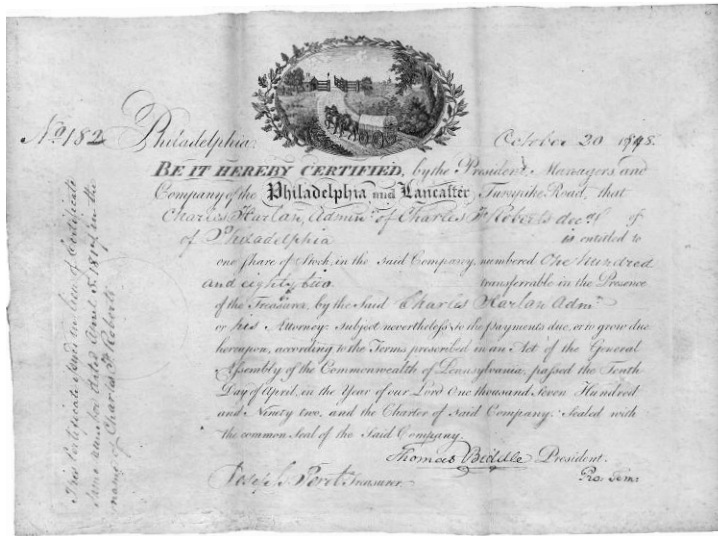 No 182 Philadelphia, October 20 1848.
BE IT HEREBY CERTIFIED, by the President, Managers and
Company of the Philadelphia and Lancaster Turnpike Road, that
Charles Harlan, Admr. of Charles Roberts decd. of
of Philadelphia is entitled to
one share of Stock, in the said Company, numbered One hundred
and eighty two transferrable in the Presence
of the Treasurer, by the Said Charles Harlan Admr.
or his Attorney: Subject nevertheless to the payments due, or to grow due
hereupon, according to the Terms prescribed in an Act of the General
Assembly of the Commonwealth of Pennsylvania, passed the Tenth
Day of April, in the Year of our Lord One thousand Seven Hundred
and Ninety two, and the Charter of said Company: Sealed with
the common Seal of the Said Company.
Thomas Biddle President.
Pro. Tem.
Treasurer
This Certificate issued in lieu of Certificate
same number dated April in the
name of Charles Roberts